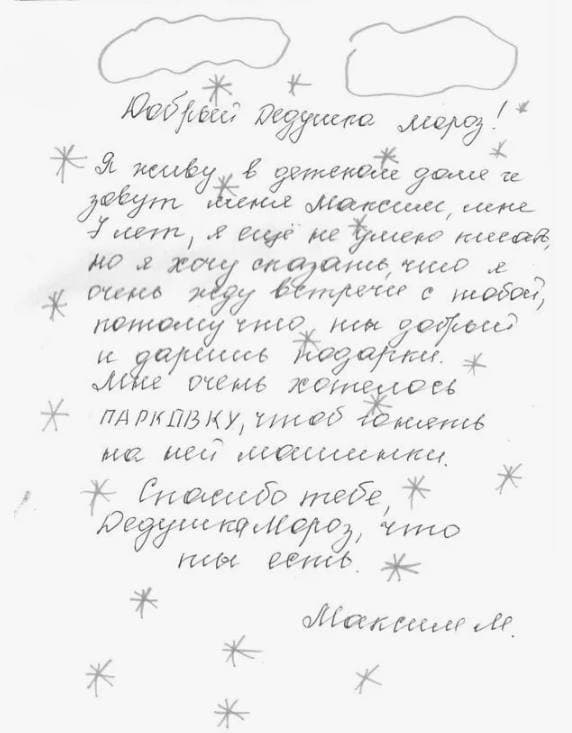 Добрый Дедушка Мороз!
Я живу в детском доме и
зовут меня Максим, мне
7 лет, я ещё не умею писать,
но я хочу сказать, что я
очень жду встречи с тобой,
потому что ты добрый
и даришь подарки.
Мне очень хотелось
ПАРКОВКУ, чтоб гонять
на ней машинки.
Спасибо тебе,
Дедушка Мороз, что
ты есть.
Максим М.